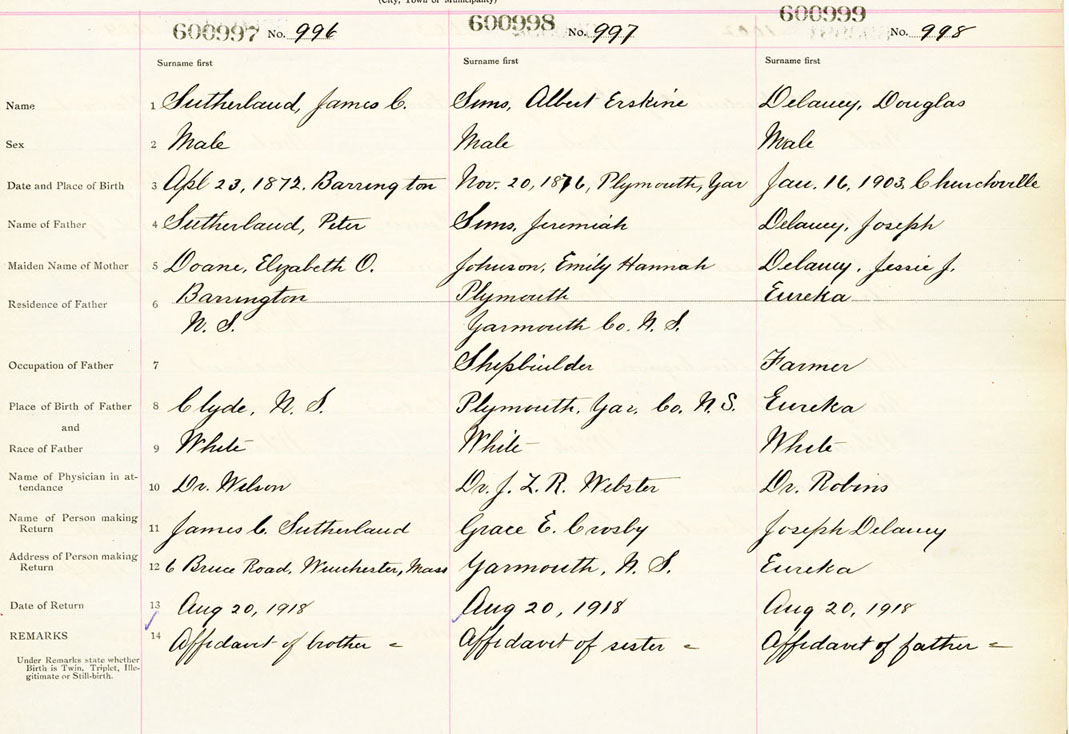 (City, Town or Municipality)
600997 No. 996
600998 No. 997
600999 No. 998
Surname first Surname first Surname first
Name 1 Sutherland, James C. Sims, Albert Erskine Delaney, Douglas
Sex 2 Male Male Male
Date and Place of Birth 3 Apl 23, 1872. Barrington Nov. 20, 1876, Plymouth, Yar Jan. 16, 1903, Churchville
Name of Father 4 Sutherland, Peter Sims, Jeremiah Delaney, Joseph
Maiden Name of Mother 5 Doane, Elizabeth O. Johnson, Emily Hannah Delaney, Jessie J.
Residence of Father 6 Barrington Plymouth Eureka
N. S. Yarmouth Co. N. S.
Occupation of Father 7 Shipbuilder Farmer
Place of Birth of Father 8 Clyde, N. S. Plymouth, Yar. Co. N. S. Eureka
and
Race of Father 9 White White White
Name of Physician in at-
tendance 10 Dr. Wilson Dr. J. L. R. Webster Dr. Robins
Name of Person making
Return 11 James C. Sutherland Grace E. Crosby Joseph Delaney
Address of Person making
Return 12 6 Bruce Road, Winchester, Mass Yarmouth, N. S. Eureka
Date of Return 13 Aug 20, 1918 Aug 20, 1918 Aug 20, 1918
REMARKS 14 Affidavit of brother = Affidavit of sister = Affidavit of father =
Under Remarks state whether
Birth is Twin, Triplet, Ille-
gitimate or Still-birth.